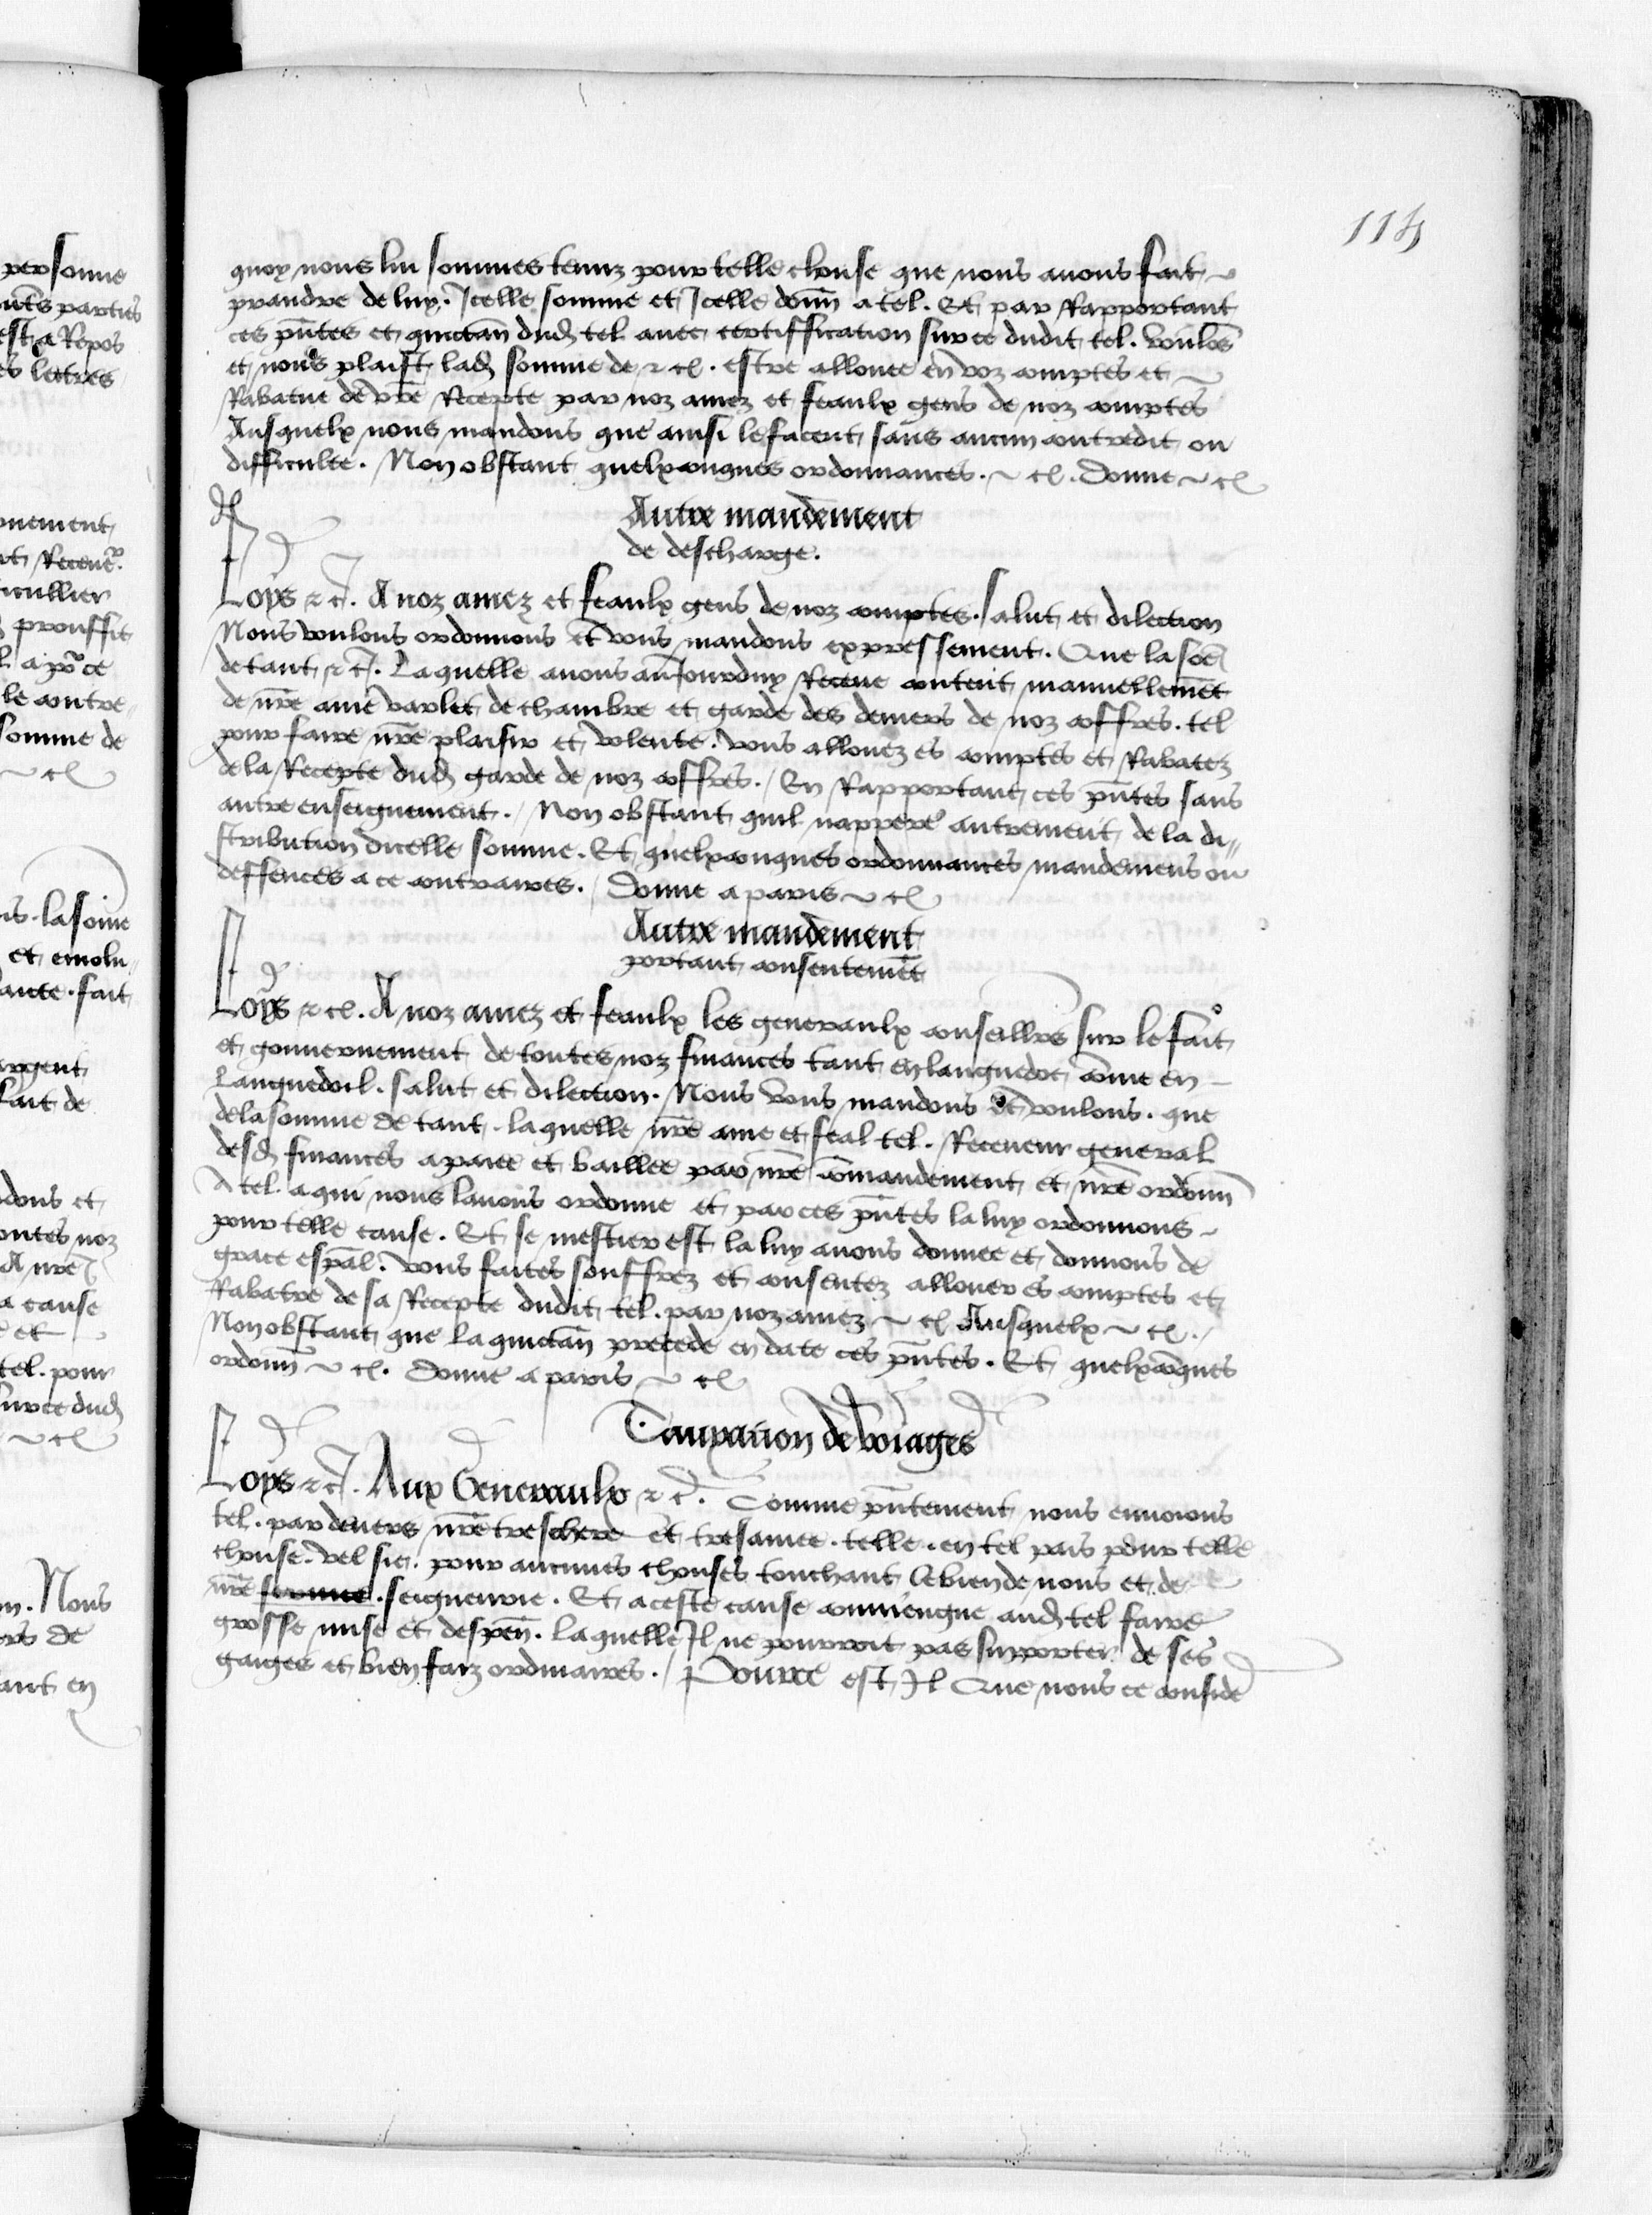 114
quoy nous lui sommes tenuz pour telle chouse que nous auons fait
prandre de luy. Icelle somme et Icelle donn̄ a tel. Et par Rapportant
ces pn̄tes et quictan̄ dud tel auec certiffication sur ce dudit tel. voulōs
et nous plaist lad somme de ⁊ c̄. estre allouee en voz comptes et
Rabatue de vr̄e Recepte par noz amez et feaulx gens de noz comptes
Ausquelx nous mandons que ainsi le facent sans aucun contredit ou
difficulte. Non obstant quelxconques ordonnances. ⁊ c̄. Donne ⁊ c̄
Autre mandement
de descharge.
Loys ⁊ c̄. A noz amez et feaulx gens de noz comptes. salut et dilection
Nous voulons ordonnons et vous mandons expressement. Que la som̄e
de tant ⁊ c̄. Laquelle auons au Jourduy Receue content manuellemēt
de nr̄e ame varlet de chambre et garde des deniers de noz coffres. tel
pour faire nr̄e plaisir et volente. vous allouez es comptes et Rabatez
de la Recepte dud garde de noz coffres. / En Rapportant ces pn̄tes sans
autre enseignement. / Non obstant quil nappere autrement de la di-
stribution dicelle somme. Et quelxconques ordonnances mandemens ou
deffences a ce contraires. / Donne a paris ⁊ c̄
Autre mandement
portant consentemēt
Loys ⁊ c̄. A noz amez et feaulx les generaulx conseillrs sur le fait
et gouuernement de toutes noz finances tant en languedoc cōme en
Languedoil. salut et dilection. Nous vous mandons et voulons. que
de la somme de tant. laquelle nr̄e ame et feal tel. Receueur general
desd finances a paiee et baillee par nr̄e cōmandement et nr̄e ordonn̄
A tel. a qui nous lauons ordonne et par ces pn̄tes la luy ordonnons
pour telle cause. Et se mestier est la luy auons donnee et donnons de
grace esp̄al. vous faites souffrez et consentez allouer es comptes et
Rabatre de sa Recepte dudit tel. par noz amez ⁊ c̄ Ausquelx ⁊ c̄. /
Nonobstant que la quictan̄ precede en date ces pn̄tes. Et quelxcōques
ordonn̄ ⁊ c̄. Donne a paris ⁊ c̄
Tauxacion de voiages
Loys ⁊ c̄. Aux Generaulx ⁊ c̄. Comme pn̄tement nous enuoions
tel. par deuers nr̄e treschere et tresamee. telle. en tel pais pour telle
chouse. vel sic. pour aucunes chouses touchant le bien de nous et de
nr̄e seigneurie. Et a ceste cause conuiengne aud tel faire
grosse mise et despen̄. laquelle Il ne pourroit pas supporter de ses
gaiges et bienfaiz ordinaires. / Pource est Il Que nous ce conside